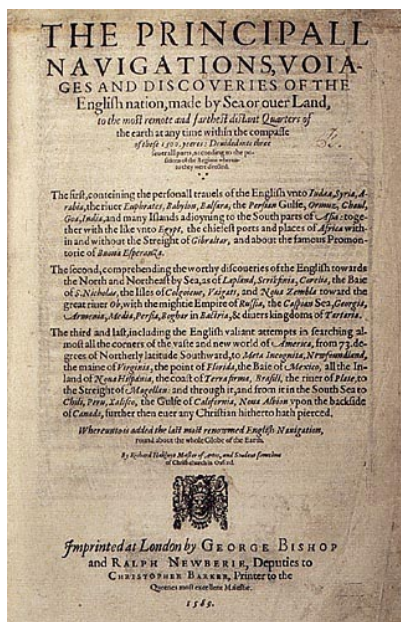 THE PRINCIPALL
NAVIGATIONS, VOIA-
GES AND DISCOVERIES OF THE
Engliſh nation, made by Sea or ouer Land,
to the moſt remote and fartheſt diſtant Quarters of
the earth at any time within the compaſſe
of theſe 1500. yeeres: Deuided into three
ſeuerall parts, according to the po-
ſitions of the Regions wherun-
to they were directed.
The firſt, conteining the perſonall trauels of the Engliſh vnto Iudæa, Syria, A-
rabia, the riuer Euphrates, Babylon, Balſara, the Perſian Gulfe, Ormuz, Chaul,
Goa, India, and many Iſlands adioyning to the South parts of Aſia: toge-
ther with the like vnto Egypt, the chiefeſt ports and places of Africa with-
in and without the Streight of Gibraltar, and about the famous Promon-
torie of Buona Eſperanza.
The second, comprehending the worthy diſcoueries of the Engliſh towards
the North and Northeaſt by Sea, as of Lapland, Scrikfinia, Corelia, the Baie
of S. Nicholas, the Iſles of Colgoieue, Vaigats, and Noua Zembla toward the
great riuer Ob, with the mightie Empire of Ruſſia, the Caſpian Sea, Georgia,
Armenia, Media, Perſia, Boghar in Bactria, & diuers kingdoms of Tartaria.
The third and laſt, including the Engliſh valiant attempts in ſearching al-
moſt all the corners of the vaſte and new world of America, from 73. de-
grees of Northerly latitude Southward, to Meta Incognita, Newfoundland,
the maine of Virginia, the point of Florida, the Baie of Mexico, all the In-
land of Noua Hiſpania, the coaſt of Terra firma, Braſill, the riuer of Plate, to
the Streight of Magellan: and through it, and from it in the South Sea to
Chili, Peru, Xaliſco, the Gulfe of California, Noua Albion vpon the backſide
of Canada, further then euer any Chriſtian hitherto hath pierced.
Whereunto is added the laſt moſt renowmed Engliſh Nauigation,
round about the whole Globe of the Earth.
By Richard Hakluyt Maſter of Artes, and Student ſometime
of Chriſt-church in Oxford.
Imprinted at London by GEORGE BISHOP
and RALPH NEWBERIE, Deputies to
CHRISTOPHER BARKER, Printer to the
Queenes moſt excellent Maieſtie.
1589.